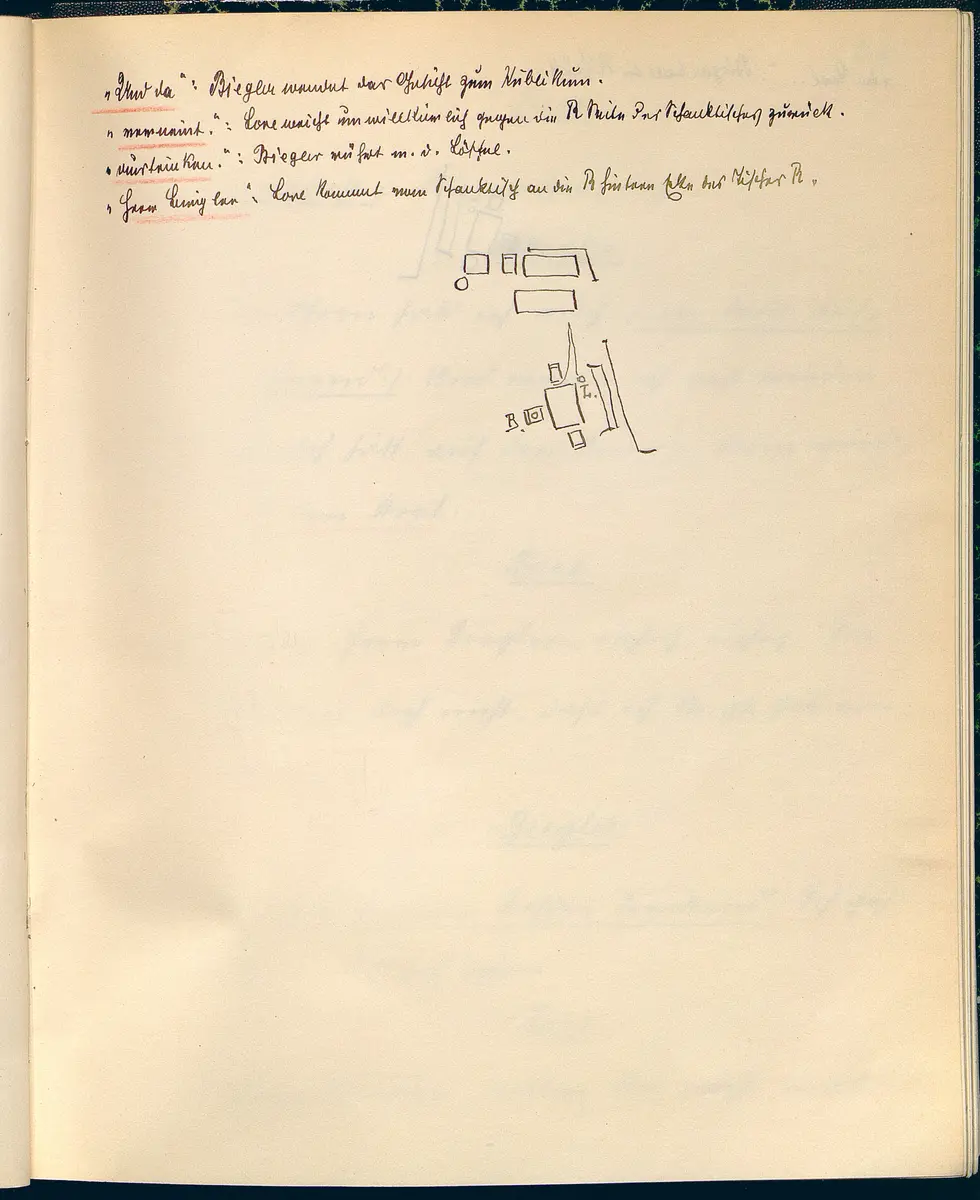 „Und da“: Biegler wendet das Gesicht zum Publikum.
„verneint.“: Lore weicht unwillkürlich gegen die R Seite des Schanktisches zurück.
„austrinken.“: Biegler rührt m. d. Löffel.
„Herr Biegler“: Lore kommt vom Schanktisch an die R hintere Ecke des Tisches R.
L.
B.